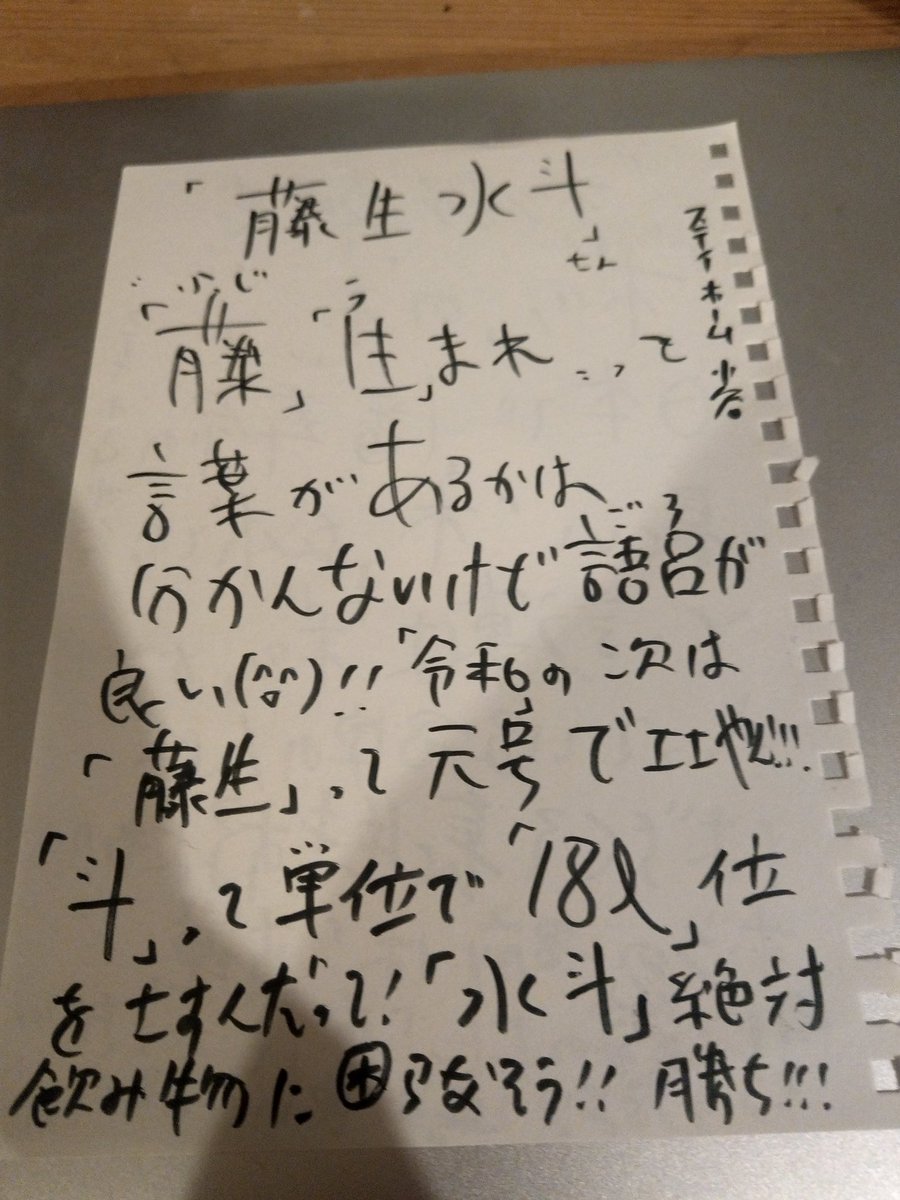 「藤生水斗」
さん
ステイホーム当番
「藤」「生」まれ…って
ふじ
う
言葉があるかは
分かんないけど語呂が
ごろ
良い(^o^)!!「令和」の次は
「藤生」って元号でエエやん!!!
「斗」って単位で「18ℓ」位
を示すんだって!「水斗」絶対
飲み物に困らなそう!! 勝ち!!!